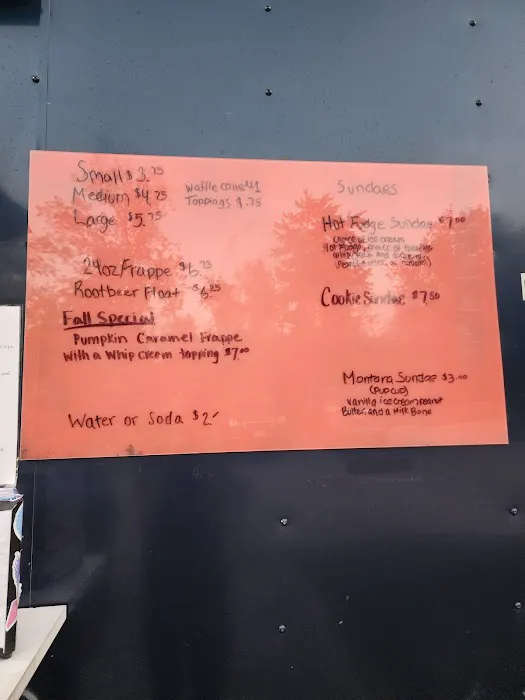 Small $3.75
Medium $4.75
Large $5.75
Waffle cone $1
Toppings $.75
24oz Frappe $6.75
Rootbeer Float $6.25
Fall Special
Pumpkin Caramel Frappe
with a Whip Cream topping $7.00
Water or Soda $2.
Sundaes
Hot Fudge Sundae $7.00
choice of ice cream
Hot Fudge, choice of topping
whip cream and a cherry
Cookie Sundae $7.50
Montara Sundae $3.00
(pup cup)
vanilla ice cream peanut
Butter, and a Milk Bone